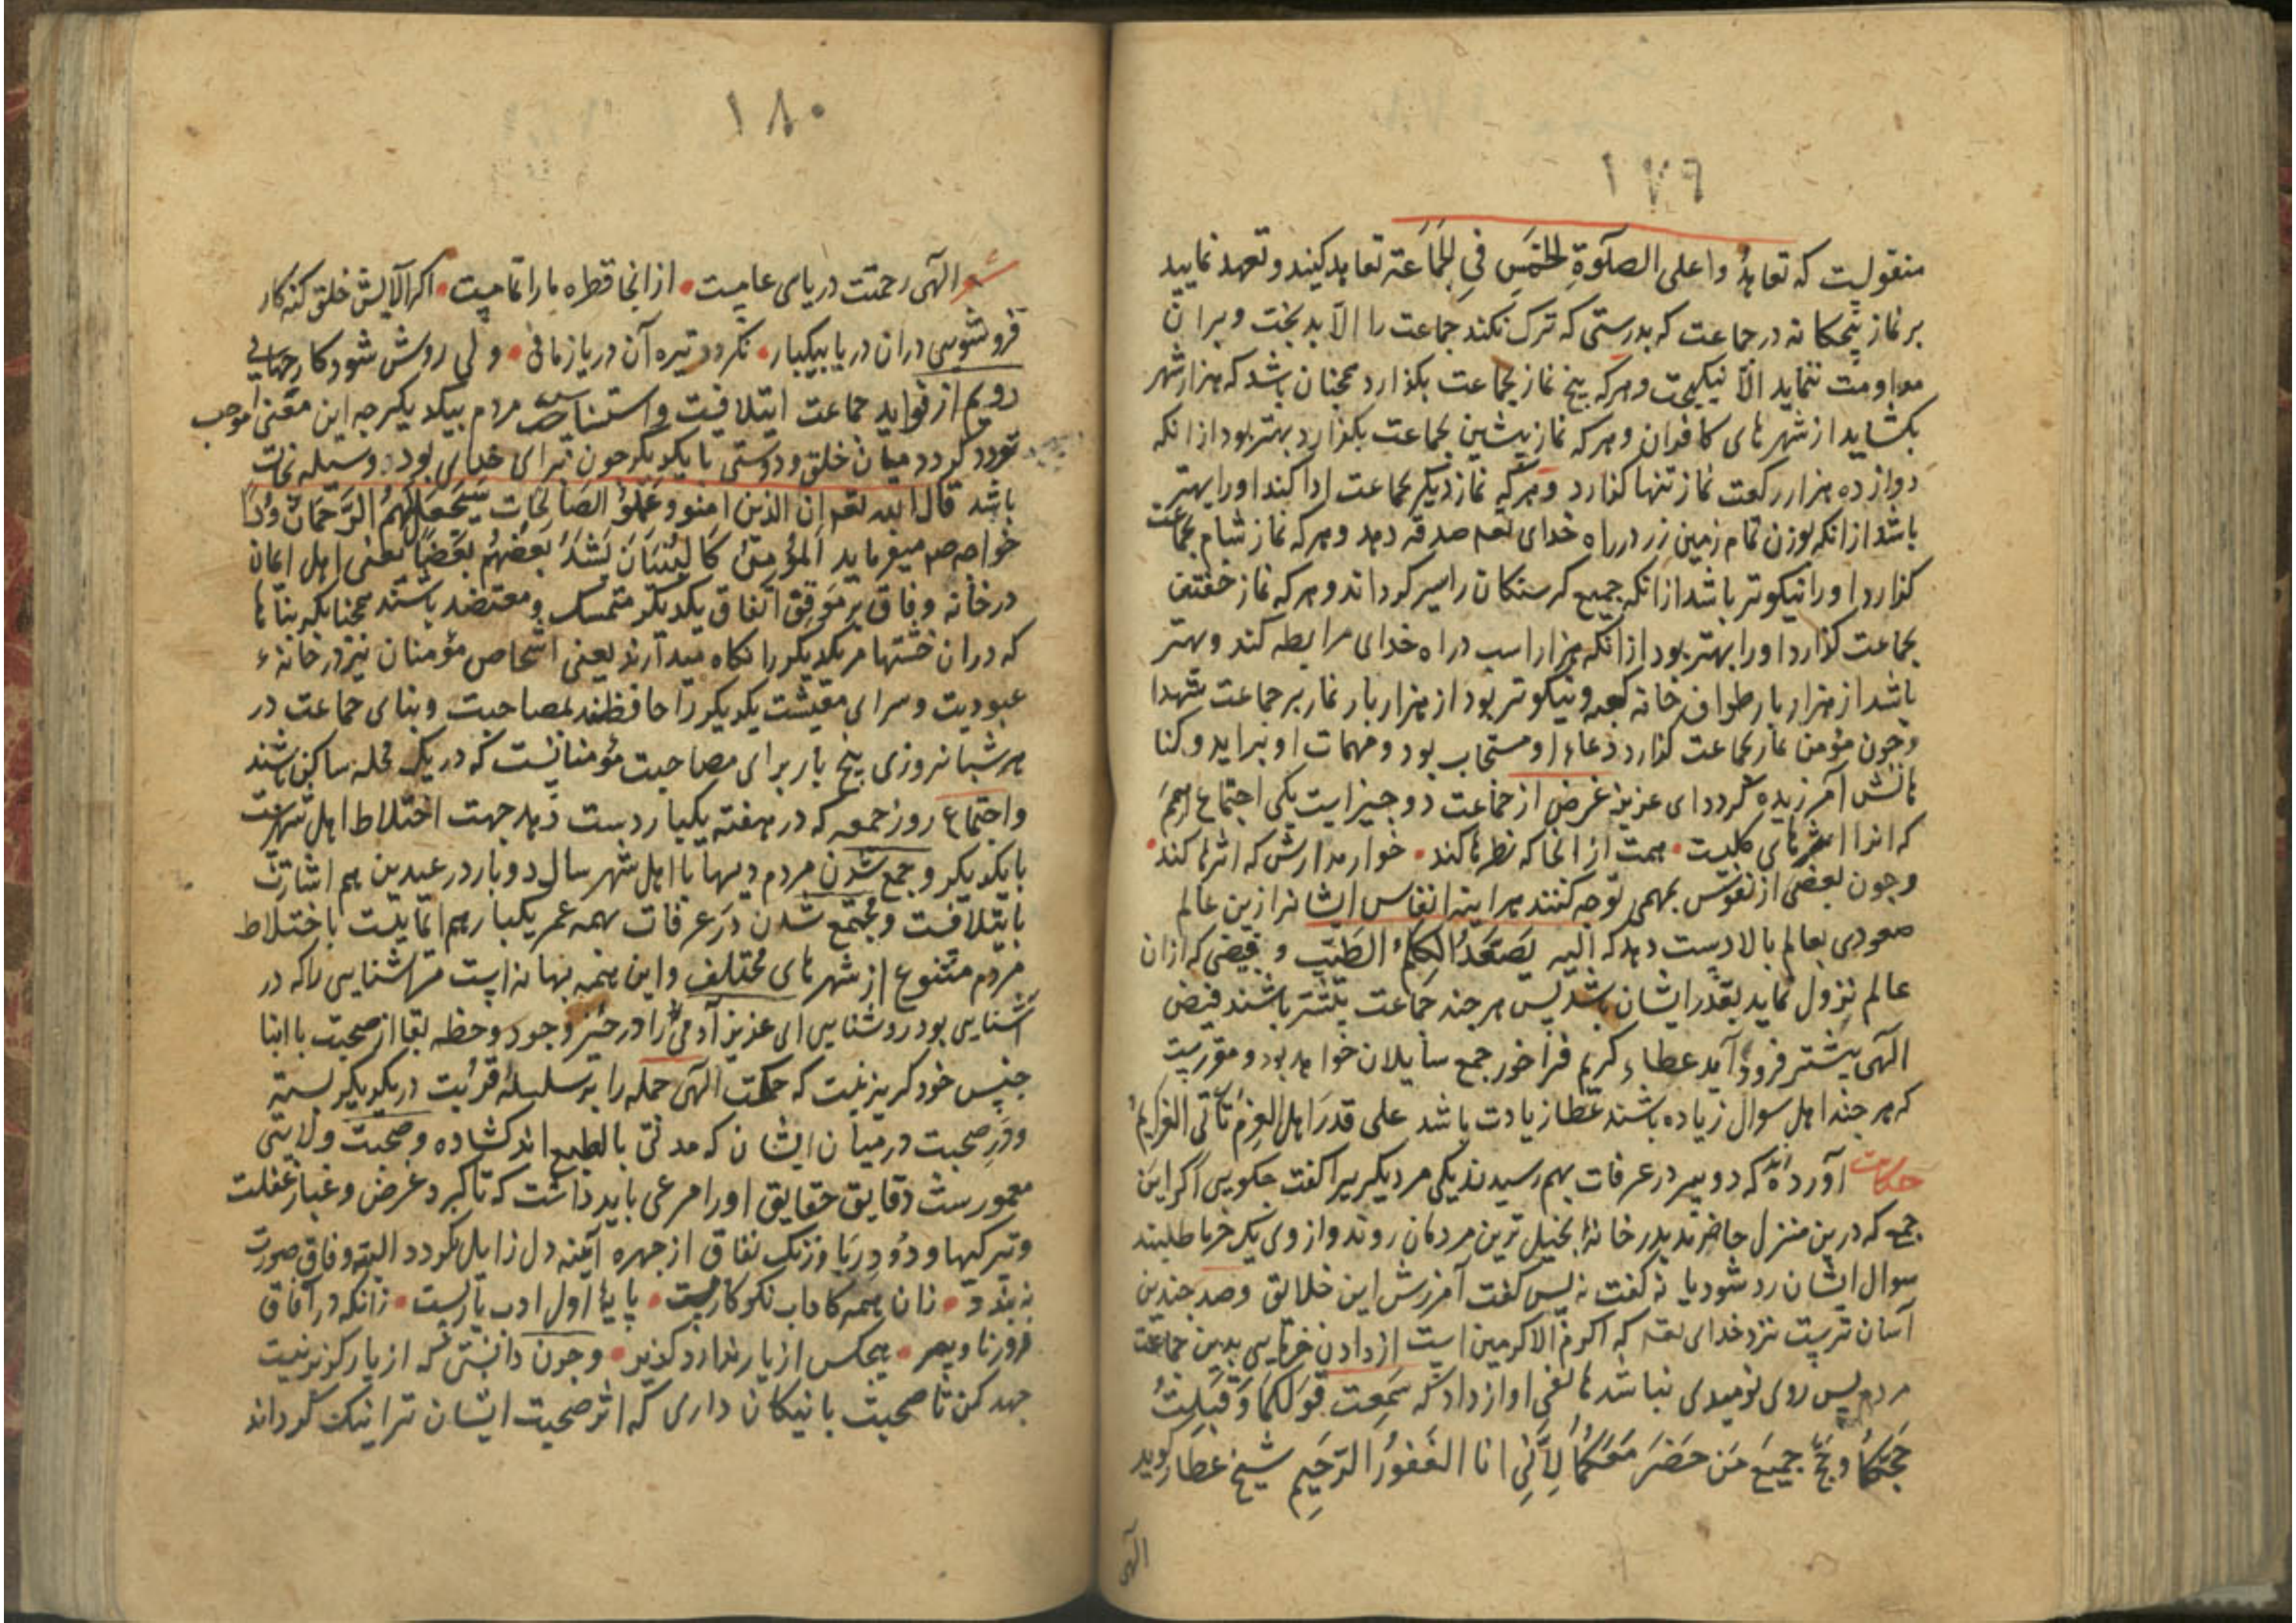 ۱۷۹
منقولیست که تعاهدوا علی الصلوة الخمس فی الجماعة تعاهد کنید وتعهد نمایید
بر نماز پنجکانه در جماعت که بدرستی که ترک نکند جماعت را الا بدبخت وبران
مداومت ننماید الا نیکبخت وهرکه پنج نماز بجماعت بکذارد همچنان باشد که هزار شهر
بکشاید از شهرهای کافران وهرکه نماز پیشین بجماعت بکذارد بهتر بود ازانکه
دوازده هزار رکعت نماز تنها کذارد وهرکه نماز دیکر بجماعت ادا کند اورا بهتر
باشد ازانکه بوزن تمام زمین زر در راه خدای تعه صدقه دهد وهرکه نماز شام بجماعت
کذارد اورا نیکوتر باشد ازانکه جمیع کرسنکان را سیر کرداند وهرکه نماز خفتن
بجماعت کذارد اورا بهتر بود ازانکه هزار اسب در راه خدای مرابطه کند وبهتر
باشد از هزار بار طواف خانه کعبه ونیکوتر بود از هزار بار نماز بر جماعت شهدا
وچون مؤمن نماز بجماعت کذارد دعاء او مستجاب بود ومهمات او براید وکنا
هانش آمرزیده کردد ای عزیز غرض از جماعت دو چیزاست یکی اجتماع همم
که انرا اثرهای کلیست • همت ازانجا که نظرها کند • خوار مدارش که اثرها کند •
وچون بعضی از نفوس بمهمی توجه کنند هراینه انفاس ایشانرا ازین عالم
صعودی بعالم بالا دست دهد که الیه یصعد الکلم الطیب وفیضی که ازان
عالم نزول نماید بقدر ایشان باشد پس هر چند جماعت بیشتر باشند فیض
الهی بیشتر فرود آید عطاء کریم فراخور جمع سایلان خواهد بود ومقررست
که هر چند اهل سوال زیاده باشند عطا زیادت باشد علی قدر اهل العزم تأتی العزایم
حکایت آورده اند که دو پیر در عرفات بهم رسیدند یکی مر دیکر پیر را کفت چکویی اکر این
جمع که درین منزل حاضرند بدر خانۀ بخیل ترین مردمان روند واز وی یک خرما طلبند
سوال ایشان رد شود یا نه کفت نه پس کفت آمرزش این خلائق وصد چندین
آسان ترست نزد خدای تعه که اکرم الاکرمین است از دادن خرمایی بدین جماعت
مردم پس روی نومیدی نباشد هاتفی اواز داد که سمعت قولکما وقبلت
حجکما وحج جمیع من حضر معکما لأننی انا الغفور الرحیم شیخ عطار کوید
الهی
۱۸۰
شعر الهی رحمتت دریای عامست • ازانجا قطره ما را تمامست • اکر آلایش خلق کنه کار
فروشویی دران دریا بیکبار • نکردد تیره آن دریا زمانی • ولی روشن شود کار جهانی
دویم از فواید جماعت ایتلافست واستیناس مردم بیکدیکر چه این معنی موجب
تودد کردد میان خلق ودوستی با یکدیکر چون برای خدای بود وسیله نجات
باشد قال الله تعه ان الذین امنو وعملو الصالحات سیجعل لهم الرحمان ودا
خواجه صم میفرماید المؤمن کالبنیان یشد بعضهم بعضا یعنی اهل ایمان
در خانه وفاق بر موفق اتفاق یکدیکر متمسک ومعتضد باشند همچنانکه بناها
که دران خشتها مر یکدیکر را نکاه میدارند یعنی اشخاص مؤمنان نیز در خانۀ
عبودیت وسرای معیشت یکدیکر را حافظند بمصاحبت وبنای جماعت در
هر شبانروزی پنج بار برای مصاحبت مؤمنانیست که در یک محله ساکن باشند
واجتماع روز جمعه که در هفته یکبار دست دهد جهت اختلاط اهل شهرست
با یکدیکر وجمع شدن مردم دیهها با اهل شهر سال دو بار در عیدین هم اشارتست
بایتلافست ومجتمع شدن در عرفات بهمه عمر یکبار هم ایماییست باختلاط
مردم متنوع از شهرهای مختلف واین همه بهانه است مر آشنایی را که در
آشنایی بود روشنایی ای عزیز آدمی را در حیز وجود وحظه بقا از صحبت با ابنا
جنس خود کریز نیست که حکمت الهی جمله را به سلسلۀ قرابت در یکدیکر بسته
ودر صحبت درمیان ایشان که مدنی بالطبع اند کشاده وصحبت ولایتی
معمورست دقایق حقایق اورا مرعی باید داشت که تا کرد غرض وغبار غفلت
وتیرکیها ودود ریا وزنک نفاق از چهره آینه دل زایل نکردد البته وفاق صورت
نه بندد • زان همه کاداب نکو کاریست • پایۀ اول ادب یاریست • زانکه در آفاق
فرو زنا وپیر • هیچکس از یار ندارد کذیر • وچون دانستی که از یار کزیر نیست
جهد کن تا صحبت با نیکان داری که اثر صحبت ایشان ترا نیک کرداند